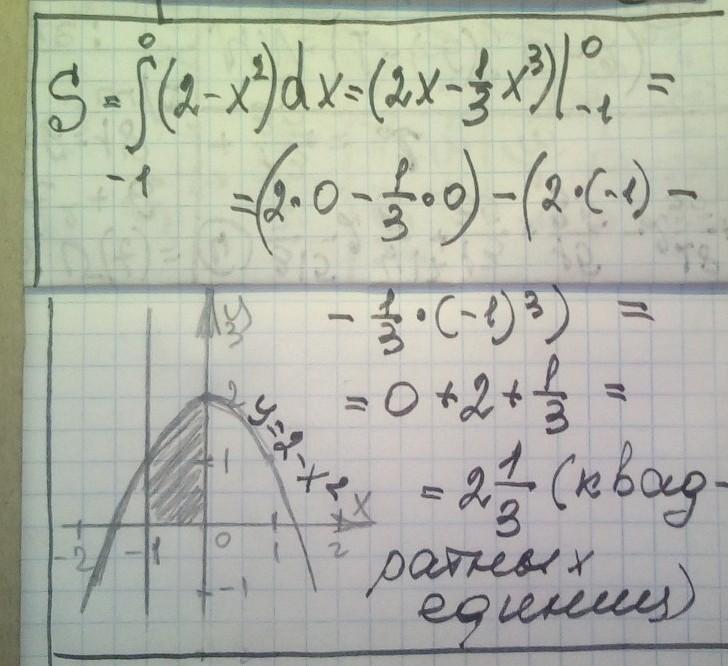 S = ∫₋₁⁰ (2 - x²) dx = (2x - 1/3 x³) |₋₁⁰ =
= (2·0 - 1/3·0) - (2·(-1) -
- 1/3·(-1)³) =
= 0 + 2 + 1/3 =
= 2 1/3 (квад-
ратных
единиц)
y
3
2
y=2-x²
1
x
-2 -1 0 1 2
-1